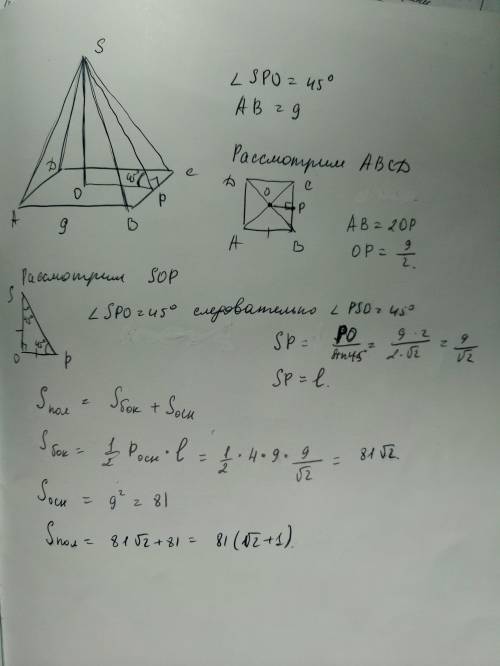 S
∠SPO = 45°
AB = 9
D
C
O
45°
P
A
9
B
Рассмотрим ABCD
D C
O
P
A B
AB = 2OP
OP = 9/2.
Рассмотрим SOP
S
45°
45°
O P
∠SPO = 45° следовательно ∠PSO = 45°
SP = PO/sin45 = 9·2/2·√2 = 9/√2
SP = l.
Sпол = Sбок + Sосн
Sбок = 1/2 Pосн · l = 1/2 · 4 · 9 · 9/√2 = 81√2.
Sосн = 9² = 81
Sпол = 81√2 + 81 = 81(√2+1).